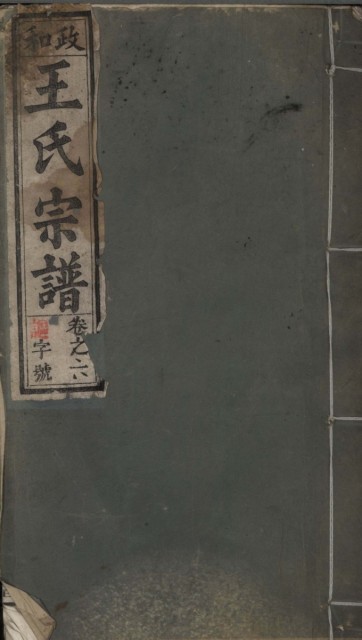 政和
王氏宗譜
卷之六
字號